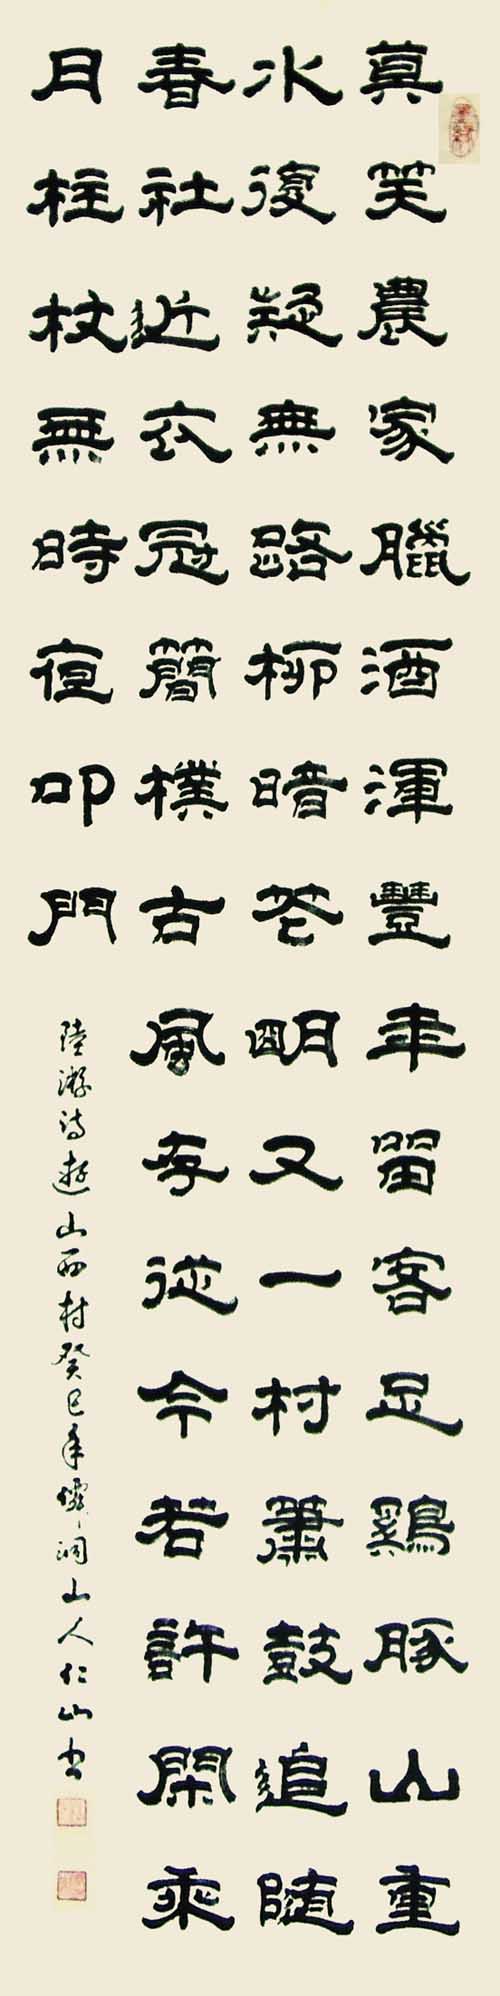 莫笑農家臘酒渾豐年留客足鷄豚山重
水復疑無路柳暗花明又一村簫鼓追隨
春社近衣冠簡樸古風存從今若許閑乘
月柱杖無時夜叩門
陸游詩遊山西村癸巳年洞山人仁山書